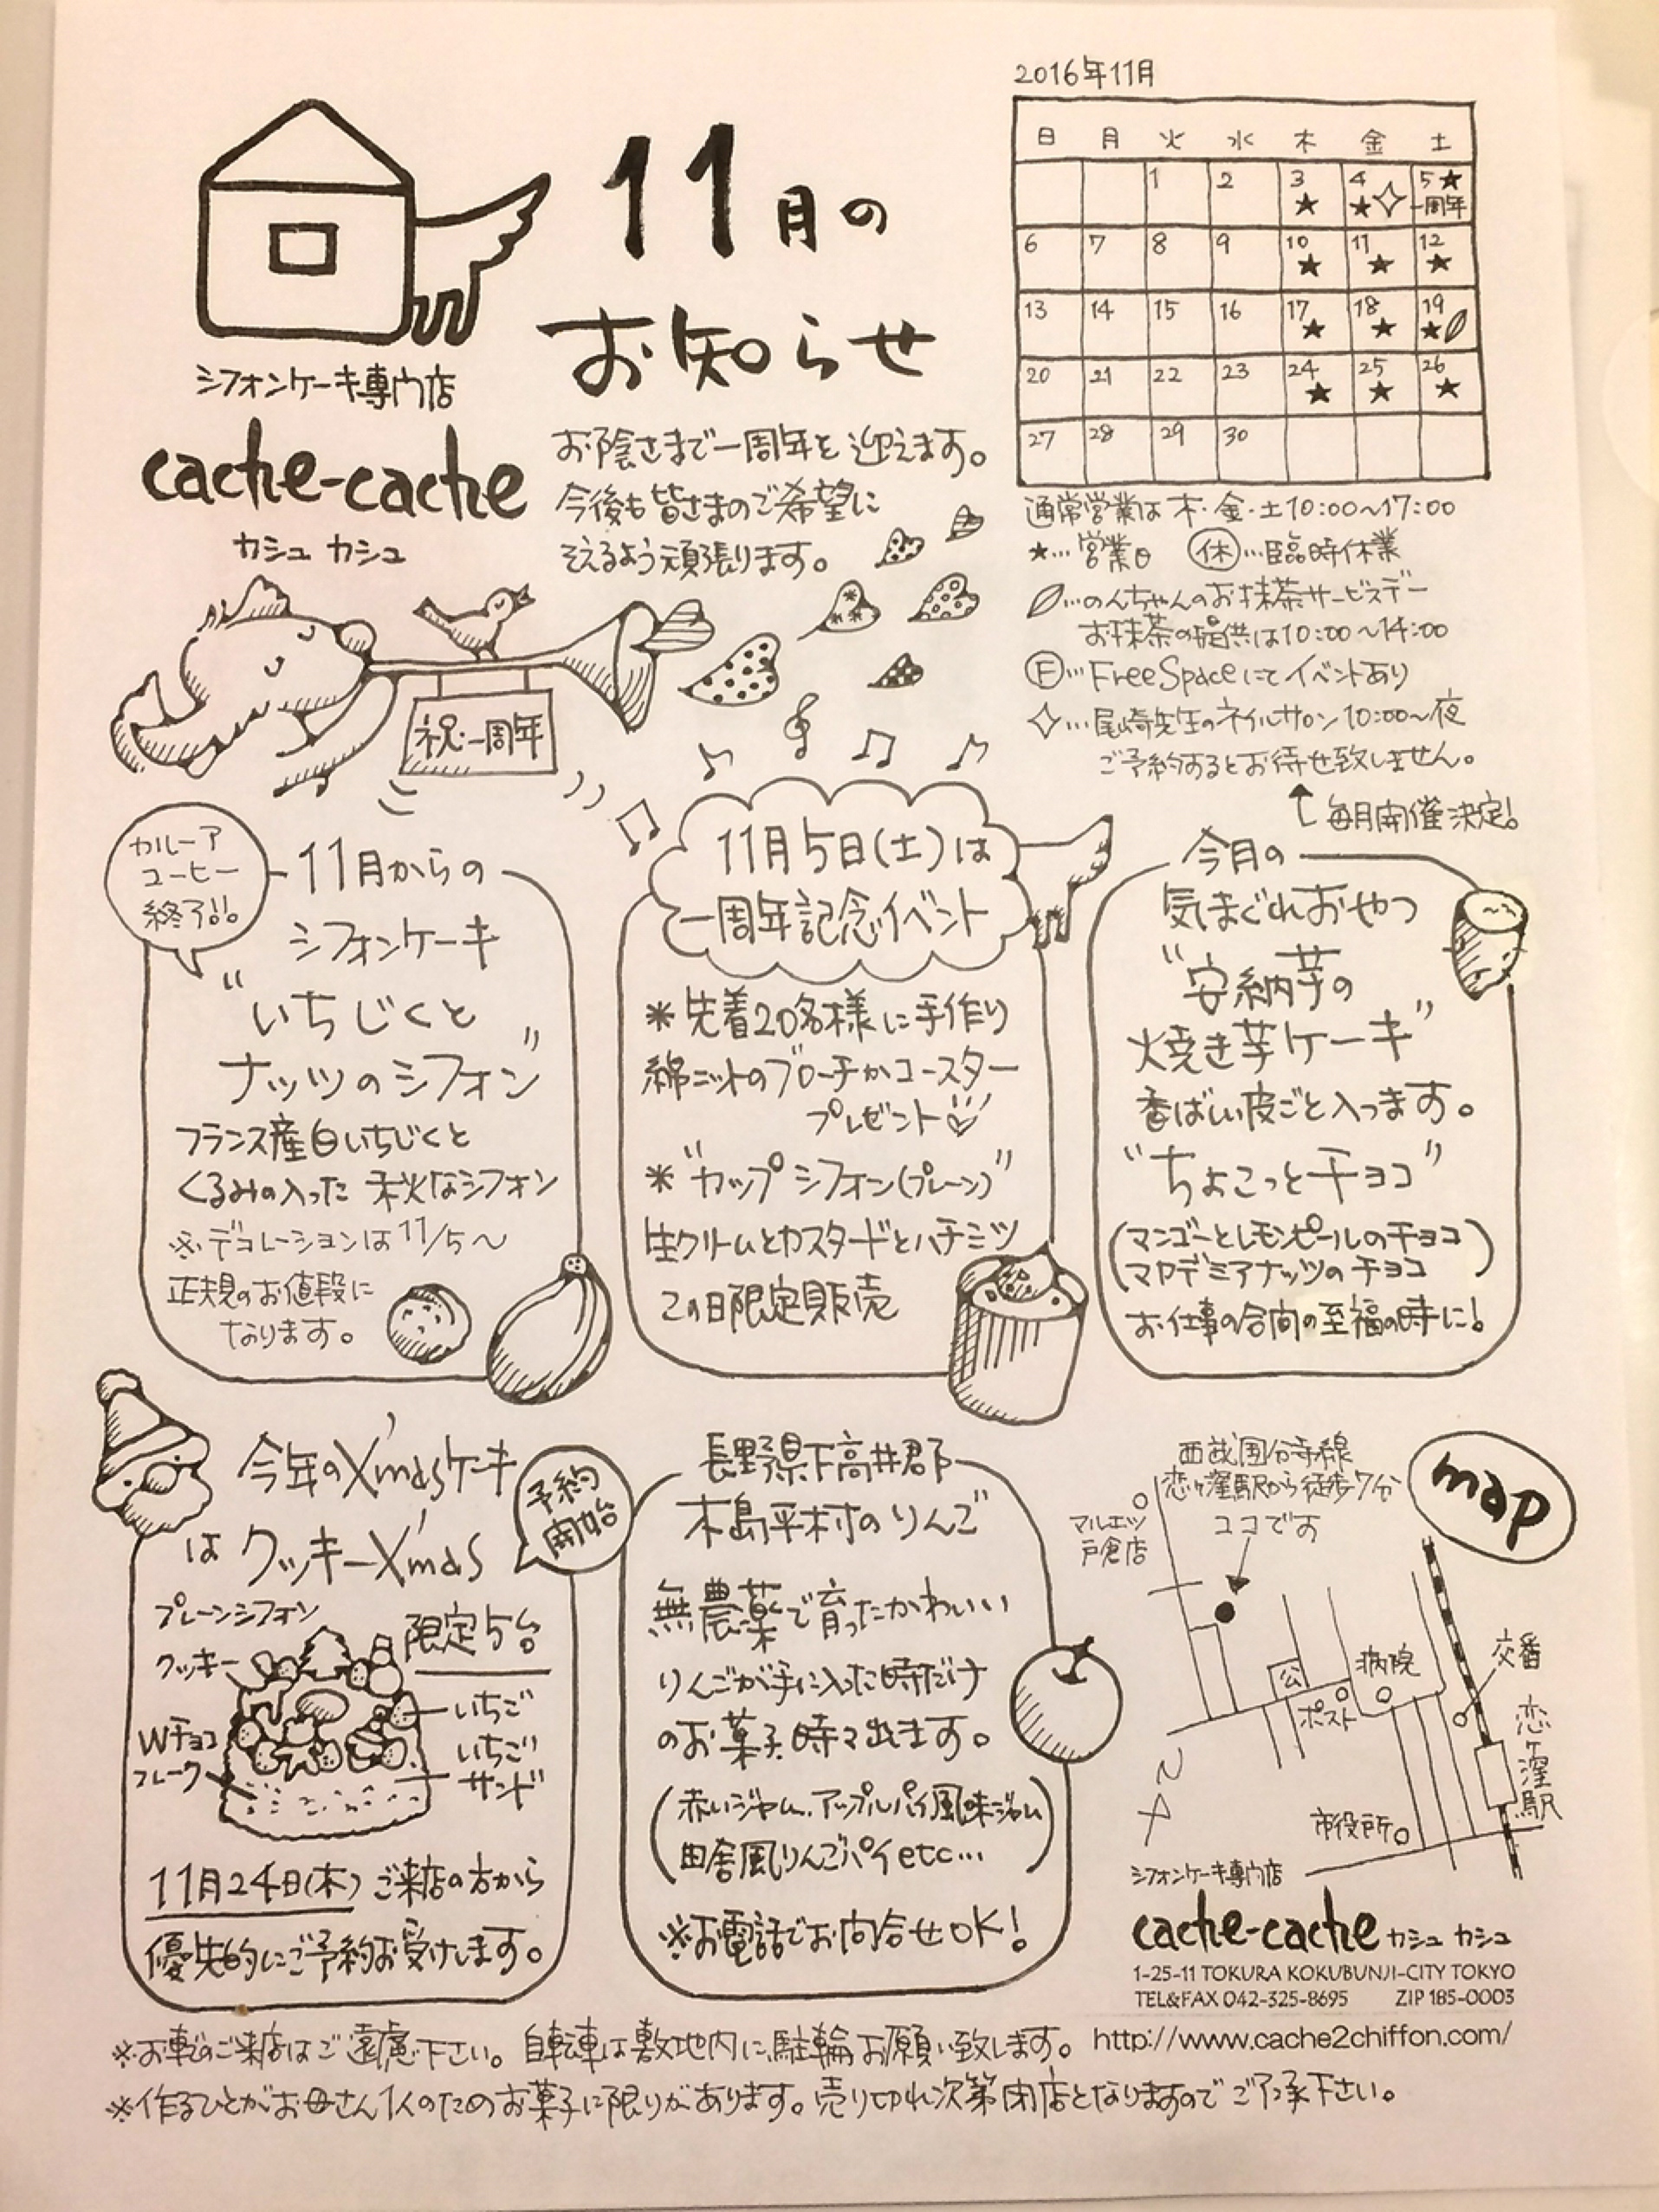 11月の
お知らせ
シフォンケーキ専門店
cache-cache
カシュ カシュ
お陰さまで一周年を迎えます。
今後も皆さまのご希望に
そえるよう頑張ります。
祝・一周年
2016年11月
日 月 火 水 木 金 土
1 2 3★ 4★ 5★
一周年
6 7 8 9 10★ 11★ 12★
13 14 15 16 17★ 18★ 19★
20 21 22 23 24★ 25★ 26★
27 28 29 30
通常営業は 木・金・土10:00〜17:00
★…営業日 休…臨時休業
…のんちゃんのお抹茶サービスデー
お抹茶の提供は10:00〜14:00
F…FreeSpaceにてイベントあり
…尾崎先生のネイルサロン10:00〜夜
ご予約するとお待せ致しません。
毎月開催決定!
カルーア
コーヒー
終了!!
11月からの
シフォンケーキ
"いちじくと
ナッツのシフォン"
フランス産白いちじくと
くるみの入った 秋なシフォン
※デコレーションは11/5〜
正規のお値段に
なります。
11月5日(土)は
一周年記念イベント
*先着20名様に手作り
綿ニットのブローチかコースター
プレゼント
*"カップシフォン(プレーン)"
生クリームとカスタードとハチミツ
この日限定販売
今月の
気まぐれおやつ
"安納芋の
焼き芋ケーキ"
香ばしい皮ごと入ってます。
"ちょこっとチョコ"
(マンゴーとレモンピールのチョコ
マカデミアナッツのチョコ)
お仕事の合間の至福の時に!
今年のX'masケーキ
は クッキーX'mas
予約
開始
プレーンシフォン
限定5台
クッキー
いちご
Wチョコ
フレーク
いちご
サンド
11月24日(木)ご来店の方から
優先的にご予約お受けします。
長野県下高井郡
木島平村のりんご
無農薬で育ったかわいい
りんごが手に入った時だけ
のお菓子、時々出ます。
(赤いジャム、アップルパイ風味ジャム
田舎風りんごパイetc…)
※お電話でお問合せOK!
map
西武国分寺線
恋ヶ窪駅から徒歩7分
ココです
マルエツ
戸倉店
公
ポスト
病院
交番
恋ヶ窪駅
市役所
シフォンケーキ専門店
cache-cache カシュ カシュ
1-25-11 TOKURA KOKUBUNJI-CITY TOKYO
TEL&FAX 042-325-8695 ZIP 185-0003
http://www.cache2chiffon.com/
※お車のご来店はご遠慮下さい。自転車は敷地内に駐輪お願い致します。
※作るひとがお母さん1人のためお菓子に限りがあります。売り切れ次第閉店となりますのでご了承下さい。